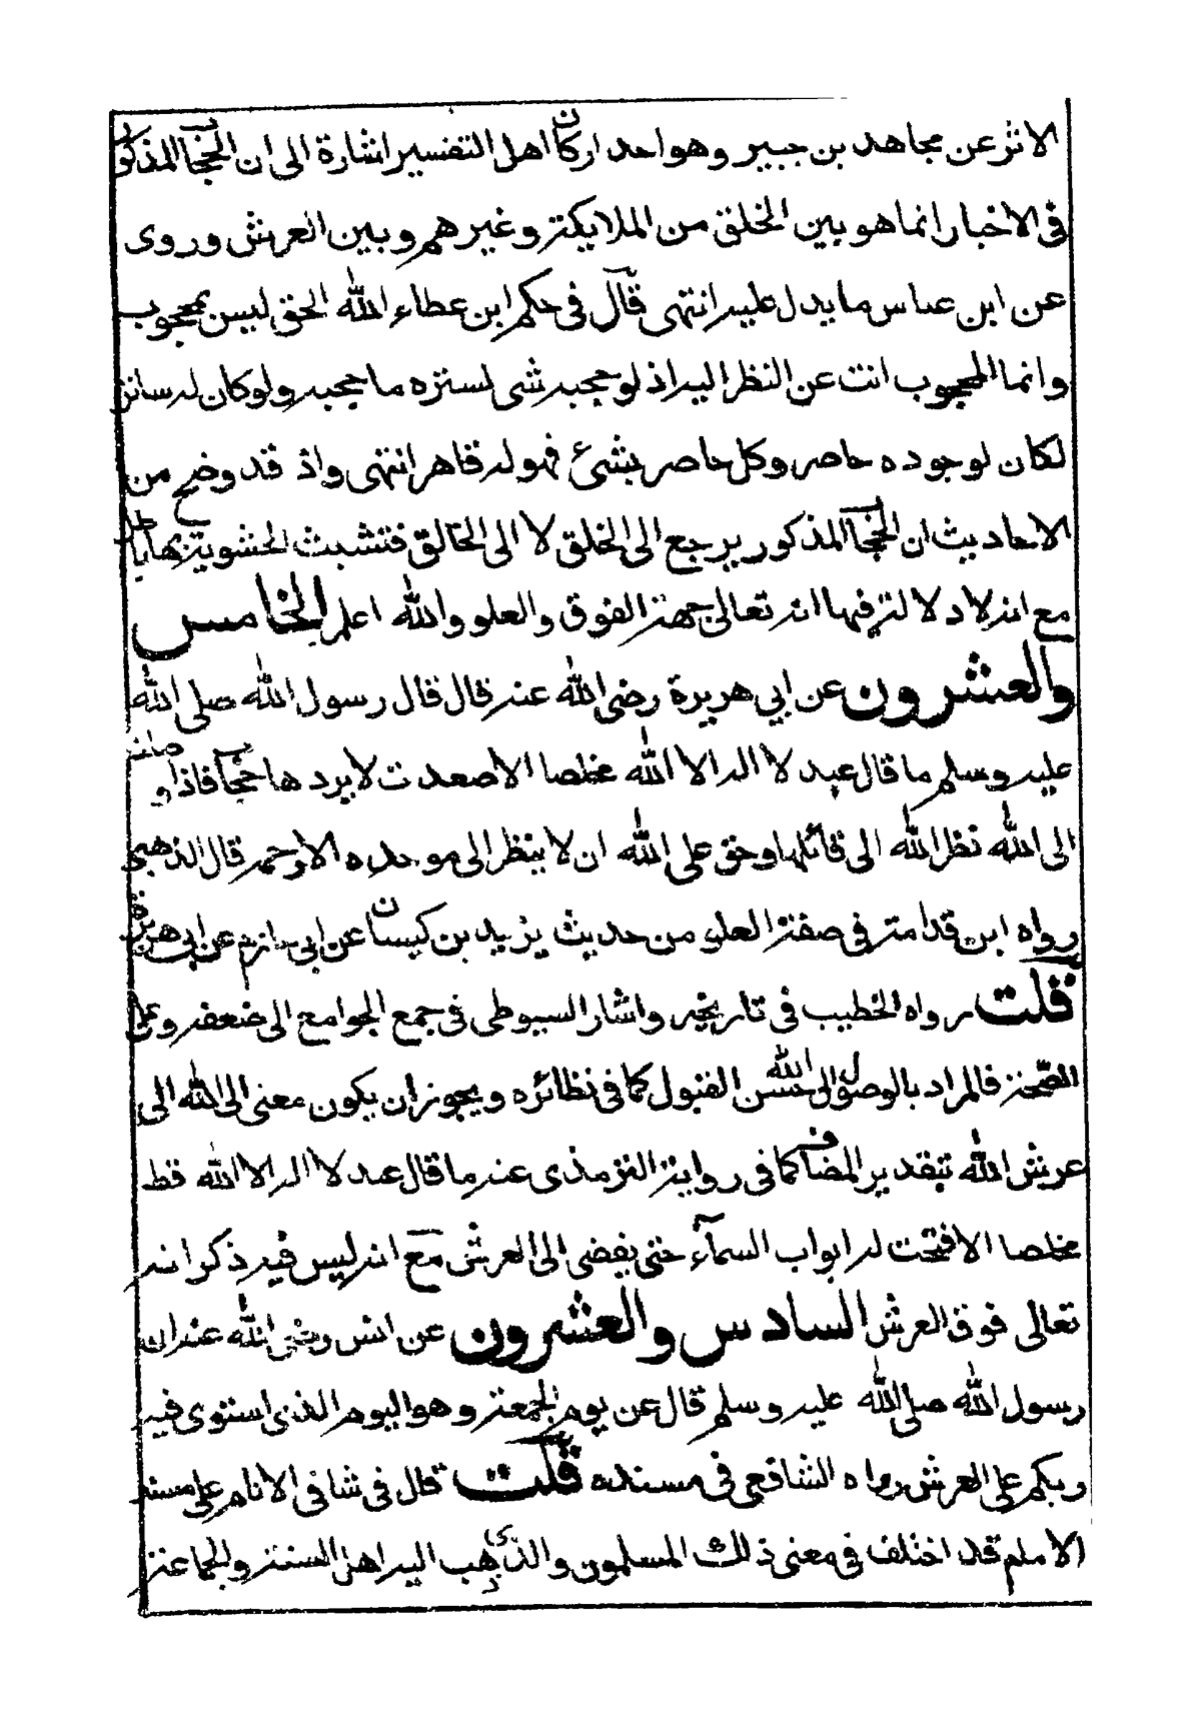 الاثر عن مجاهد بن جبير وهو احد اركان اهل التفسير اشارة الى ان الحجاب المذكور
فى الاخبار انما هو بين الخلق من الملايكة وغيرهم وبين العرش وروى
عن ابن عباس ما يدل عليه انتهى قال فى حكم ابن عطاء الله الحق ليس بمحجوب
وانما المحجوب انت عن النظر اليه اذ لو حجبه شى لستره ما حجبه ولو كان له ساتر
لكان لوجوده حاصر وكل حاصر بشئ فهو له قاهر انتهى واذ قد وضح من
الاحاديث ان الحجاب المذكور يرجع الى الخلق لا الى الخالق فتشبث الحشوية بها باطل
مع انه لا دلالة فيها انه تعالى جهة الفوق والعلو والله اعلم الخامس
والعشرون عن ابي هريرة رضى الله عنه قال قال رسول الله صلى الله
عليه وسلم ما قال عبد لا اله الا الله مخلصا الا صعدت لا يرد ها حجاب فاذا وصلت
الى الله نظر الله الى قائلها وحق على الله ان لا ينظر الى موحده الا رحمه قال الذهبى
رواه ابن قدامة فى صفة العلو من حديث يزيد بن كيسان عن ابى حازم عن ابى هريرة
قلت رواه الخطيب فى تاريخه واشار السيوطى فى جمع الجوامع الى ضعفه وعلى
الصحة فالمراد بالوصول الى الله حسن القبول كما فى نظائره ويجوز ان يكون معنى الى الله الى
عرش الله بتقدير المضاف كما فى رواية الترمذى عنه ما قال عبد لا اله الا الله قط
مخلصا الا فتحت له ابواب السمآء حتى يفضى الى العرش مع انه ليس فيه ذكر انه
تعالى فوق العرش السادس والعشرون عن انس رضى الله عنه ان
رسول الله صلى الله عليه وسلم قال عن يوم الجمعة وهو اليوم الذى استوى فيه
ربكم على العرش رواه الشافعى فى مسنده قلت قال فى شافى الانام على مسند
الامام قد اختلف فى معنى ذلك المسلمون والذى ذهب اليه اهل السنة والجماعة